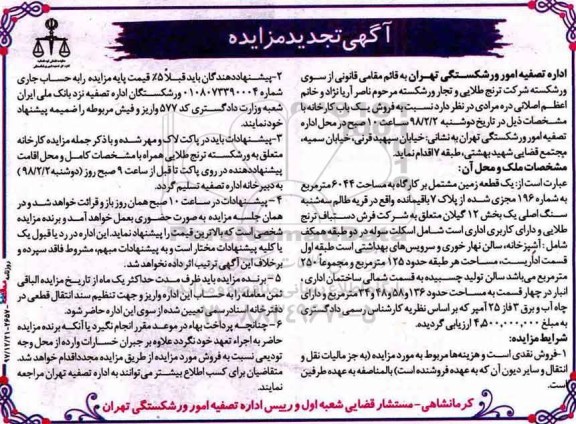 آگهی تجدید مزایده
اداره تصفیه امور ورشکستگی تهران به قائم مقامی قانونی از سوی
ورشکسته شرکت ترنج طلایی و تجار ورشکسته مرحوم ناصر آریا نژاد و خانم
اعظم اصلانی دره مرادی در نظر دارد نسبت به فروش یک باب کارخانه با
مشخصات ذیل در تاریخ دوشنبه ۹۸/۲/۲ ساعت ۱۰ صبح در محل اداره
تصفیه امور ورشکستگی تهران به نشانی: خیابان سپهبد قرنی، خیابان سمیه،
مجتمع قضایی شهید بهشتی، طبقه ۷ اقدام نماید.
مشخصات ملک و محل آن:
عبارت است از: یک قطعه زمین مشتمل بر کارگاه به مساحت ۶۰۴۴ مترمربع
به شماره ۱۹۶ مجزی شده از پلاک ۷ باقیمانده واقع در قریه طالم سه شنبه
سنگ اصلی یک بخش ۱۲ گیلان متعلق به شرکت فرش دستباف ترنج
طلایی و دارای کاربری اداری است شامل اسکلت سوله در دو طبقه همکف
شامل: آشپزخانه، سالن نهارخوری و سرویس‌های بهداشتی است طبقه اول
قسمت اداریست، مساحت هر طبقه حدود ۱۲۵ مترمربع و مجموعاً ۲۵۰
مترمربع می‌باشد سالن تولید چسبیده به قسمت شمالی ساختمان اداری،
انبار در چهار قسمت به مساحت حدود ۱۳۶ و ۵۸ و ۴۸ و ۳۴ مترمربع و دارای
چاه آب و برق ۳ فاز ۲۵ آمپر که بر اساس نظریه کارشناس رسمی دادگستری
به مبلغ ۴,۵۰۰,۰۰۰,۰۰۰ ارزیابی گردیده.
شرایط مزایده:
۱-فروش نقدی است و هزینه‌ها مربوط به مورد مزایده (به جز مالیات نقل و
انتقال و سایر دیون آن که به عهده فروشنده است) بالمناصفه به عهده طرفین
است.
۲-پیشنهاددهندگان باید قبلاً ۵٪ قیمت پایه مزایده را به حساب جاری
شماره ۰۱۰۸۰۷۳۳۹۰۰۰۴ ورشکستگان اداره تصفیه نزد بانک ملی ایران
شعبه وزارت دادگستری کد ۵۷۷ واریز و فیش مربوطه را ضمیمه پیشنهاد
خود نمایند.
۳-پیشنهادات باید در پاکت لاک و مهر شده و با ذکر جمله مزایده کارخانه
متعلق به ورشکسته ترنج طلایی همراه با مشخصات کامل و محل اقامت
پیشنهاددهنده در روی پاکت تا قبل از ساعت ۹ صبح روز (دوشنبه ۹۸/۲/۲)
به دبیرخانه اداره تصفیه تسلیم گردد.
۴-پیشنهادات در ساعت ۱۰ صبح همان روز باز و قرائت خواهد شد و در
همان جلسه مزایده به صورت حضوری بعمل خواهد آمد و برنده مزایده
شخصی است که بالاترین قیمت را پیشنهاد نماید. این اداره در رد یا قبول یک
یا کلیه پیشنهادات مختار است و به پیشنهادات مبهم، مشروط فاقد سپرده و
برخلاف این آگهی ترتیب اثر داده نخواهد شد.
۵-برنده مزایده باید ظرف مدت حداکثر یک ماه از تاریخ مزایده الباقی
ثمن معامله را به حساب این اداره واریز و جهت تنظیم سند انتقال قطعی در
دفترخانه اسناد رسمی تعیین شده از سوی این اداره حاضر شود.
۶-چنانچه پرداخت بهاء در موعد مقرر انجام نگیرد یا آنکه برنده مزایده
حاضر به اجراء تعهد خود نگردد علاوه بر جبران خسارات وارده از محل وجه
تودیعی نسبت به فروش مورد مزایده از طریق مزایده مجدد اقدام خواهد شد.
متقاضیان برای کسب اطلاع بیشتر می‌توانند به اداره تصفیه تهران مراجعه
نمایند.
کرمانشاهی- مستشار قضایی شعبه اول و رییس اداره تصفیه امور ورشکستگی تهران